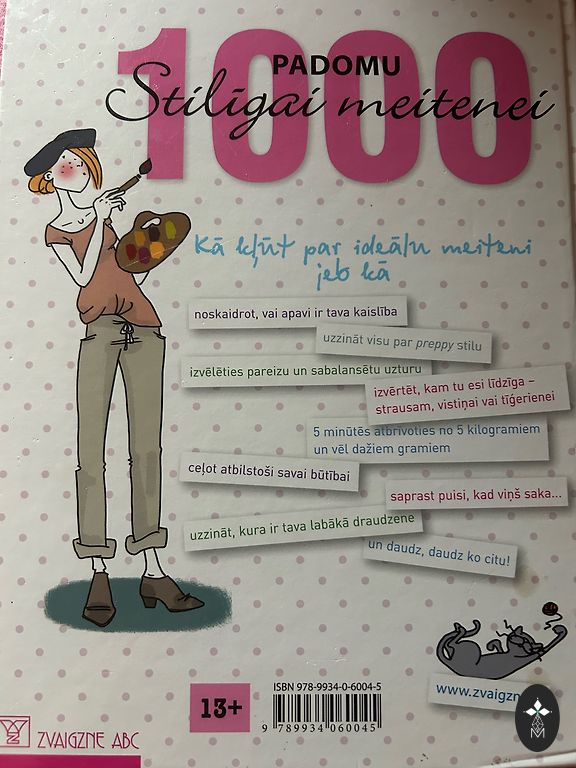 1000
PADOMU
Stilīgai meitenei
Kā kļūt par ideālu meiteni
jeb kā
noskaidrot, vai apavi ir tava kaislība
uzzināt visu par preppy stilu
izvēlēties pareizu un sabalansētu uzturu
izvērtēt, kam tu esi līdzīga –
strausam, vistiņai vai tīģerienei
5 minūtēs atbrīvoties no 5 kilogramiem
un vēl dažiem gramiem
ceļot atbilstoši savai būtībai
saprast puisi, kad viņš saka...
uzzināt, kura ir tava labākā draudzene
un daudz, daudz ko citu!
ISBN 978-9934-0-6004-5
13+
9 789934 060045
www.zvaigzn
ZVAIGZNE ABC
M